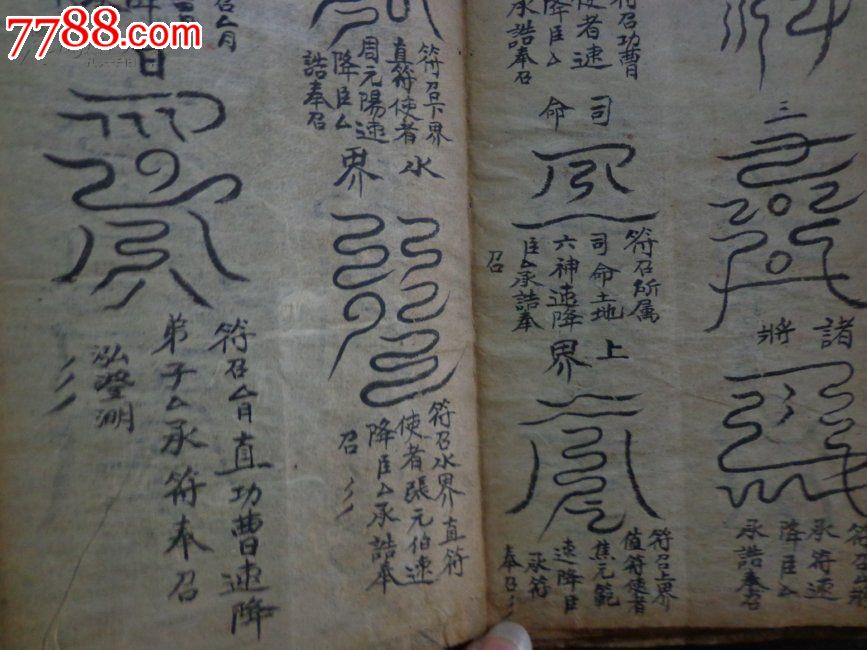 7788.com
三
諸
將
符召
承符速
降臣厶
承誥奉召
符召功曹
使者速
降臣厶
承誥奉召
司
命
符召所属
司命土地
六神速降
臣厶承誥奉
召
上
界
符召上界
值符使者
焦元範
速降臣
承符
奉召
符召下界
直符使者
周元陽速
降臣厶
誥奉召
水
界
符召水界直符
使者張元伯速
降臣厶承誥奉
召
符召厶月直功曹速降
弟子厶承符奉召
泓澄渊